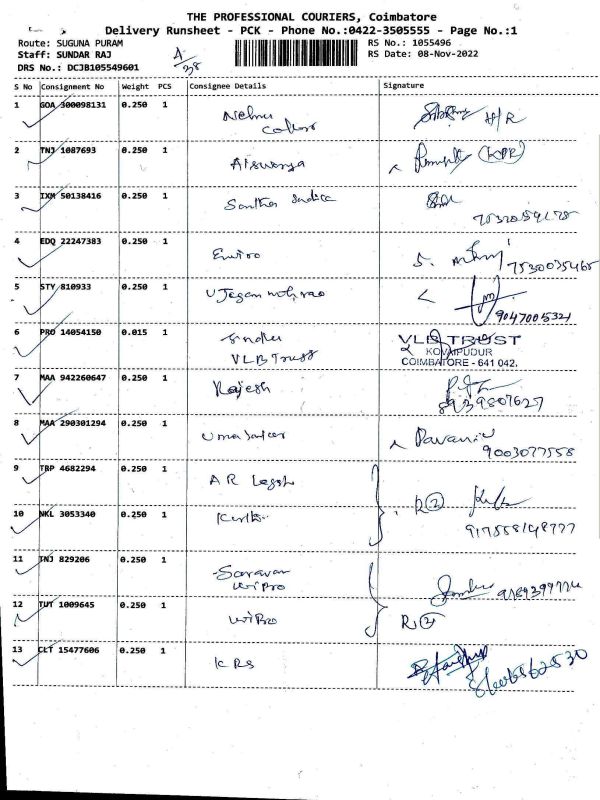 THE PROFESSIONAL COURIERS, Coimbatore
Delivery Runsheet - PCK - Phone No.:0422-3505555 - Page No.:1
Route: SUGUNA PURAM
RS No.: 1055496
Staff: SUNDAR RAJ
RS Date: 08-Nov-2022
DRS No.: DCJB105549601
S No Consignment No Weight PCS Consignee Details Signature
1 GOA 300098131 0.250 1 Nehru
H/R
2 TNJ 1087693 0.250 1 Aiswarya
3 IXM 50138416 0.250 1
4 EDQ 22247383 0.250 1 Enviro
7530035465
5 STY 810933 0.250 1
9047005321
6 PRO 14054150 0.015 1 VLB TRUST
VLB Trust KOVAIPUDUR
COIMBATORE - 641 042.
7 MAA 942260647 0.250 1 Rajesh
8939807627
8 MAA 290301294 0.250 1 Pavani
9003077558
9 TRP 4682294 0.250 1 A R
R 2
10 NKL 3053340 0.250 1
11 TNJ 829206 0.250 1 Saravan
WiPro
12 TUT 1009645 0.250 1 WiPro R 2
13 CLT 15477606 0.250 1 KRS